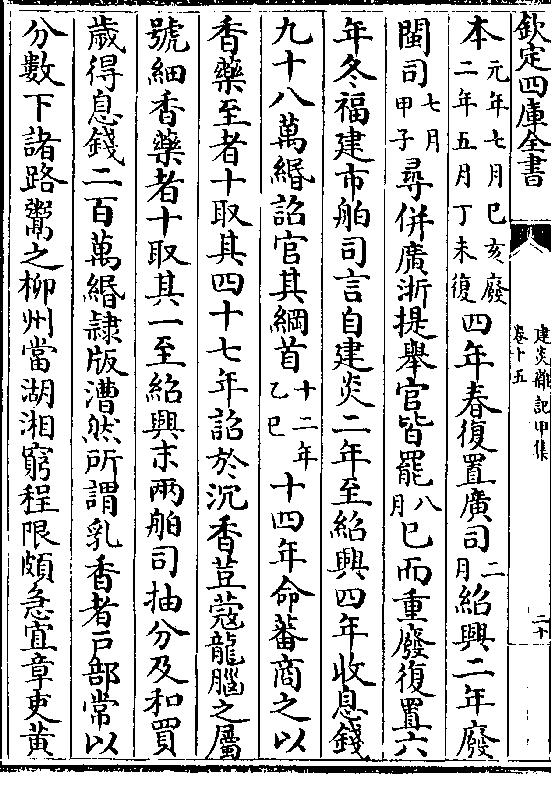 欽定四庫全書
建炎雜記甲集
卷十五
二十
本元年七月巳亥廢二年五月丁未復四年春復置廣司二月紹興二年廢
閩司七月甲子尋併廣浙提舉官皆罷八月巳而重廢復置六
年冬福建市舶司言自建炎二年至紹興四年收息錢
九十八萬緡詔官其綱首十二年乙巳十四年命蕃商之以
香藥至者十取其四十七年詔於沉香荳蔻龍腦之屬
號細香藥者十取其一至紹興末兩舶司抽分及和買
歲得息錢二百萬緡隷版漕然所謂乳香者户部常以
分數下諸路鬻之柳州當湖湘窮程限頗急宜章吏黃